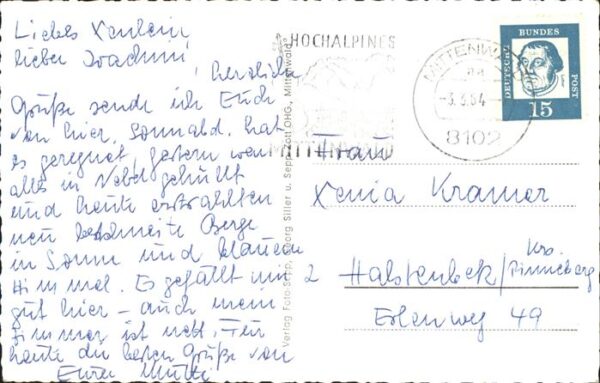 Liebes Xenlein,
lieber Joachim,
herzliche
Grüße sende ich Euch
von hier. Sonnabd. hat
es geregnet, gestern war
alles in Nebel gehüllt
und heute erstrahlten
neu beschneite Berge
in Sonne und blauem
Himmel. Es gefällt mir
gut hier – auch mein
Zimmer ist nett. Für
heute die besten Grüße von
Eurer Mutti
Verlag Foto-Stop, Georg Siller u. Sepp Zott OHG., Mittenwald
HOCHALPINES
MITTENWALD
MITTENWALD
-3.3.64
8102
DEUTSCHE
BUNDES
POST
15
Frau
Xenia Kramer
2 Halstenbek/Krs. Pinneberg
Erlenweg 49